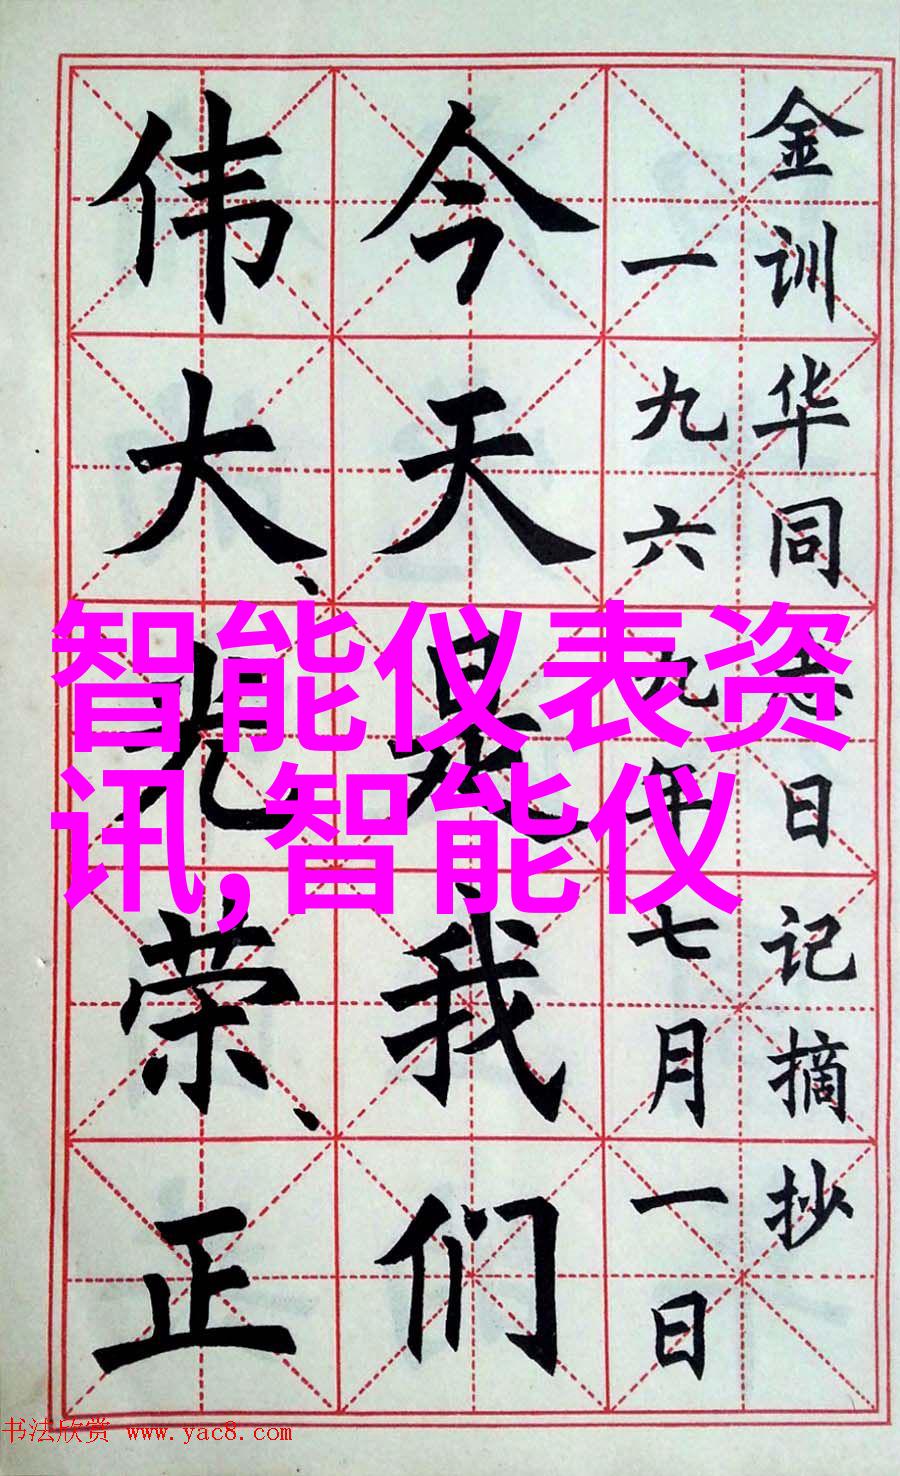 金训华同志日记摘抄
一九六九年七月一日
今天是我们
伟大、光荣、正
智能仪表资
讯,智能仪
书法欣赏 www.yac8.com